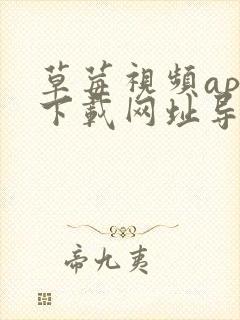 草莓視頻ap
下載网址导
帝九夷